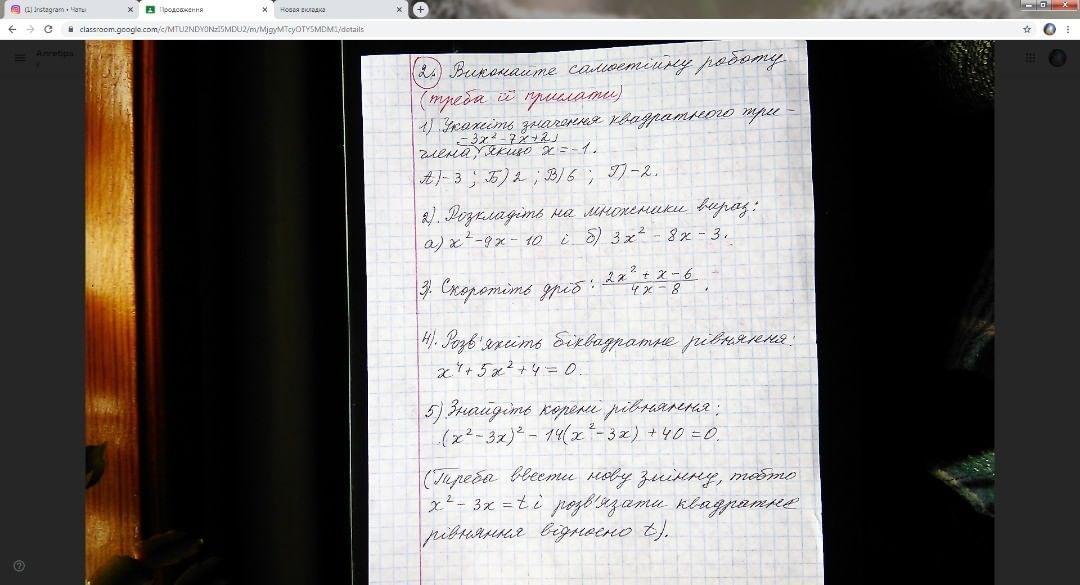 (1) Instagram • Чаты
Продовження
Новая вкладка
classroom.google.com/c/MTU2NDY0NzI5MDU2/m/MjgyMTcyOTY5MDM1/details
Алгебра
2. Виконайте самостійну роботу
(треба її прислати)
1) Укажіть значення квадратного три-
-3x² - 7x + 2,
члена, якщо x = -1.
А) -3 ; Б) 2 ; В) 6 ; Г) -2.
2). Розкладіть на множники вираз:
а) x² - 9x - 10 і б) 3x² - 8x - 3.
3). Скоротіть дріб: 2x² + x - 6
4x - 8 .
4). Розв'яжіть біквадратне рівняння:
x⁴ + 5x² + 4 = 0.
5) Знайдіть корені рівняння:
(x² - 3x)² - 14(x² - 3x) + 40 = 0.
(Треба ввести нову змінну, тобто
x² - 3x = t і розв'язати квадратне
рівняння відносно t).